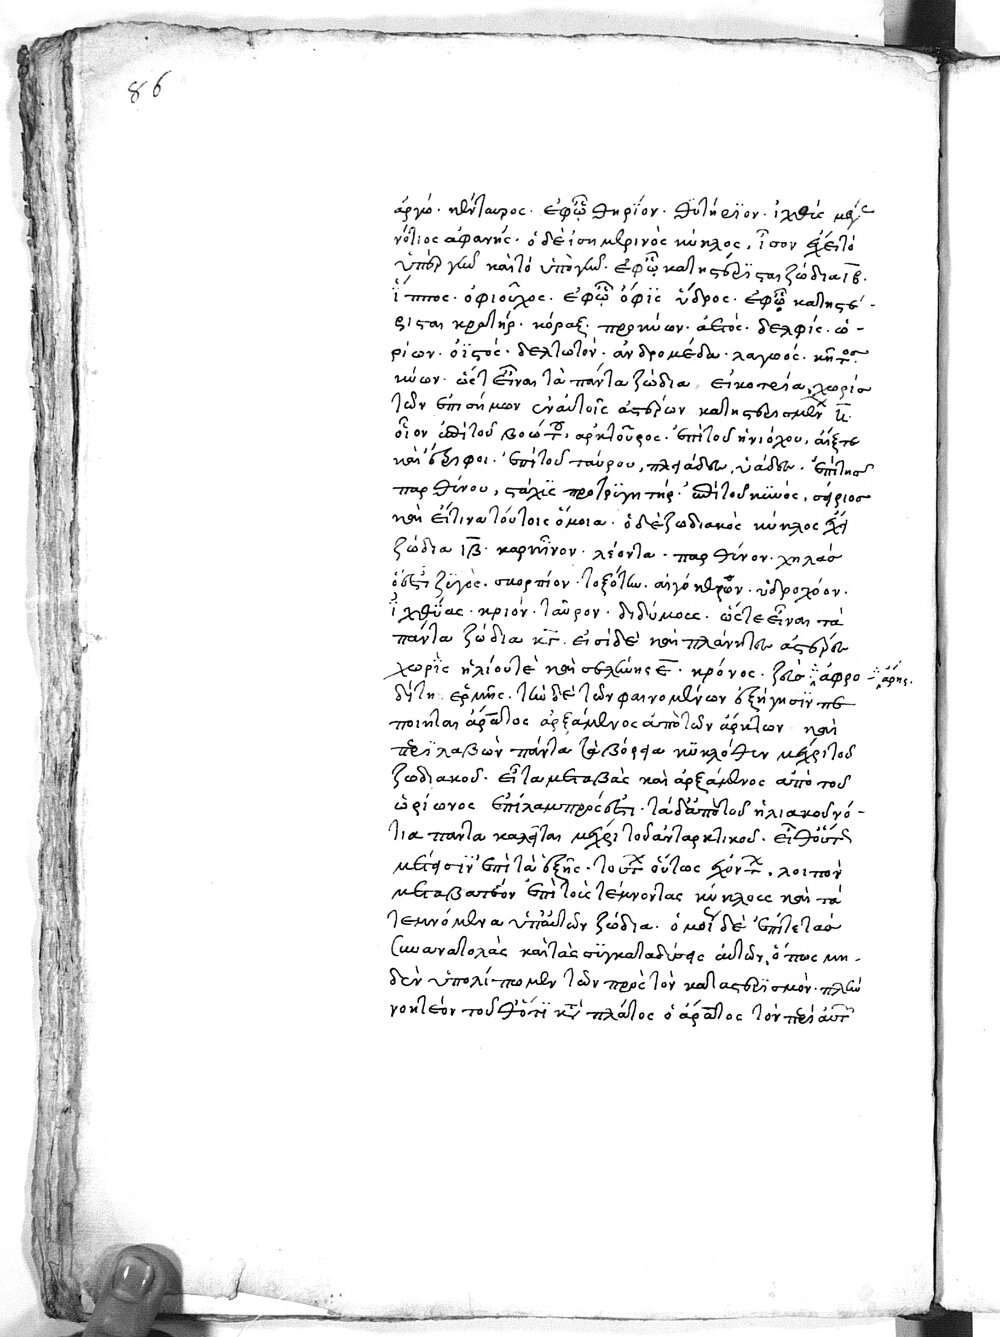 86
ἀργώ· κένταυρος· ἐφῶ θηρίον· θυτήριον· ἰχθὺς μέγας
νότιος ἀφανής· ὁ δὲ ἰσημερινὸς κύκλος, ἴσον ἔχει τὸ
ὑπὲρ γῆν καὶ τὸ ὑπὸ γῆν· ἐφῶ κατηστέρισται ζώδια ιβ·
ἵππος· ὀφιοῦχος· ἐφῶ ὄφις ὕδρος· ἐφῶ κατηστέ-
ρισται κρατήρ· κόραξ· προκύων· ἀετός· δελφίς· ὠ-
ρίων· ὀϊστός· δελτωτόν· ἀνδρομέδα· λαγωός· κῆτος
κύων· ὥστ εἶναι τὰ πάντα ζώδια εἰκοτρία, χωρὶς
τῶν ἐπισήμων ἐν αὐτοῖς ἀστέρων κατηστερισμένων
οἷον ἐπὶ τοῦ βοώτου, ἀρκτοῦρος· ἐπὶ τοῦ ἡνιόχου, αἲξ τε
καὶ ἔριφοι· ἐπὶ τοῦ ταύρου, πλειάδων, ὑάδων· ἐπὶ τῆς
παρθένου, στάχυς προτρυγητήρ· ἐπὶ τοῦ κυνός, σείριος
καὶ εἴ τινα τούτοις ὅμοια· ὁ δὲ ζωδιακὸς κύκλος ἔχει
ζώδια ιβ· καρκῖνον· λέοντα· παρθένον· χηλάς
ὅ ἐστι ζυγός· σκορπίον· τοξότην· αἰγόκερων· ὑδροχόον·
ἰχθύας· κριόν· ταῦρον· διδύμους· ὥστε εἶναι τὰ
πάντα ζώδια κγ· εἰσὶ δὲ καὶ πλανητῶν ἀστέρων
χωρὶς ἡλίου τε καὶ σελήνης ε· κρόνος· ζεύς ἀφρο- ἄρης·
δίτη ἑρμῆς· τὴν δὲ τῶν φαινομένων ἐξήγησιν πε
ποίηται ἄρατος ἀρξάμενος ἀπὸ τῶν ἄρκτων καὶ
περιλαβὼν πάντα τὰ βόρεια κυκλόθεν μέχρι τοῦ
ζωδιακοῦ· εἶτα μεταβὰς καὶ ἀρξάμενος ἀπὸ τοῦ
ὠρίωνος ἐπεὶ λαμπρός ἐστι· τὰ δ ἀπὸ τοῦ ἡλιακοῦ νό-
τια πάντα καλεῖται μέχρι τοῦ ἀνταρκτικοῦ· εἶθ οὕτως
μέτεισιν ἐπὶ τὰ ἑξῆς· τούτων οὕτως ἐχόντων, λοιπὸν
μεταβατέον ἐπὶ τοὺς τέμνοντας κύκλους καὶ τὰ
τεμνόμενα ὑπ αὐτῶν ζώδια· ὁμοῦ δὲ ἐπί τε τὰς
συνανατολὰς καὶ τὰς συγκαταδύσεις αὐτῶν, ὅπως μη-
δὲν ὑπολίπωμεν τῶν πρὸς τὸν καταστερισμόν· πλὴν
νοητέον τοῦθ ὅτι κατὰ πλάτος ὁ ἄρατος τὸν περὶ αὐτῶν